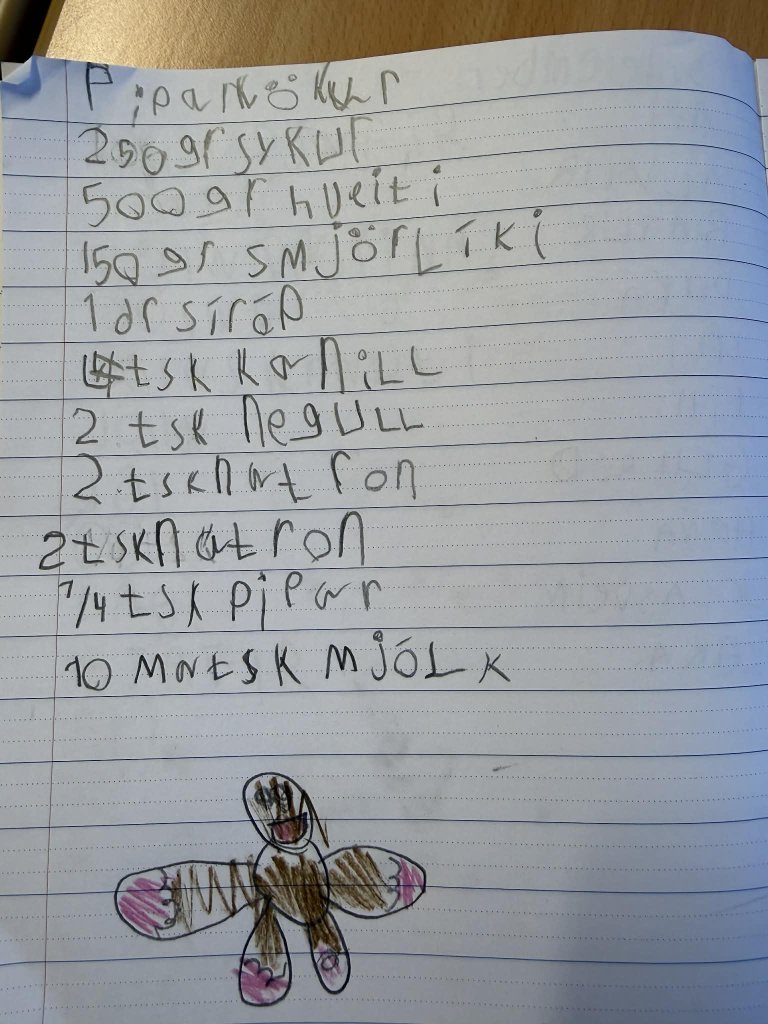 Piparkökur
250 gr sykur
500 gr hveiti
150 gr smjörlíki
1 dr síróp
4 tsk kanill
2 tsk negull
2 tsk natron
2 tsk natron
1/4 tsk pipar
10 matsk mjólk